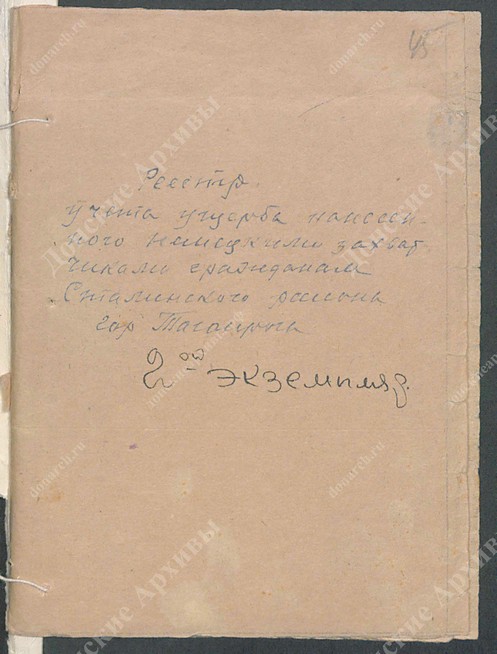 45
Реестр
учета ущерба нанесен-
ного немецкими захват
чиками гражданам
Сталинского района
гор Таганрога
2ой экземпляр.
Донские Архивы
donarch.ru